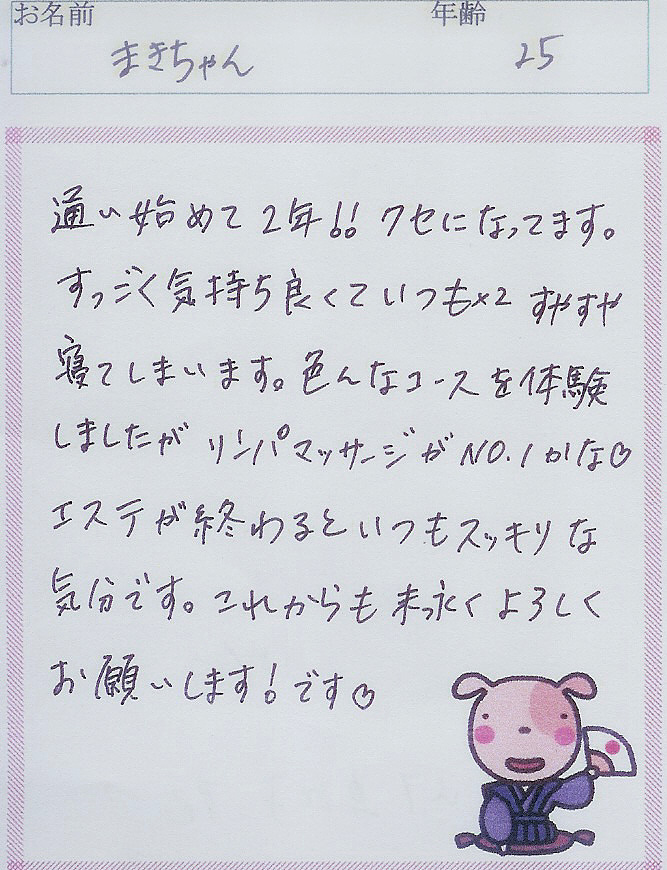 お名前 年齢
まきちゃん 25
通い始めて2年!! クセになってます。
すっごく気持ち良くていつも×2 すやすや
寝てしまいます。色んなコースを体験
しましたが リンパマッサージがNO.1かな♡
エステが終わるといつもスッキリな
気分です。これからも末永くよろしく
お願いします!です♡